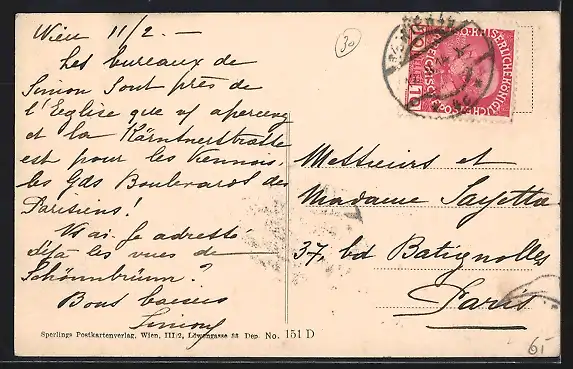 Wien 11/2. —
Les bureaux de
Simon sont près de
l'Eglise que v/ apercevez
et la Kärntnerstrasse
est pour les Viennois
les Gds Boulevards des
Parisiens!
V/ ai-je adressé
déjà les vues de
Schönnbrünn?
Bons baisers
Simon
30
Messieurs et
Madame Sayetta
37, bd Batignolles
Paris
Sperlings Postkartenverlag, Wien, III/2, Löwengasse 38 Dep. No. 151 D
6.-